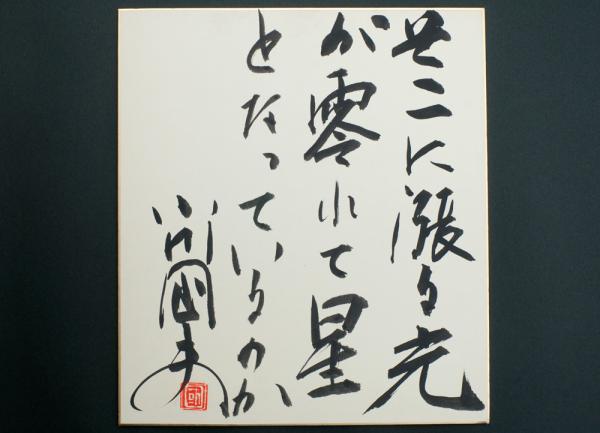 そこに漲る光
が零れて星
となっているのか